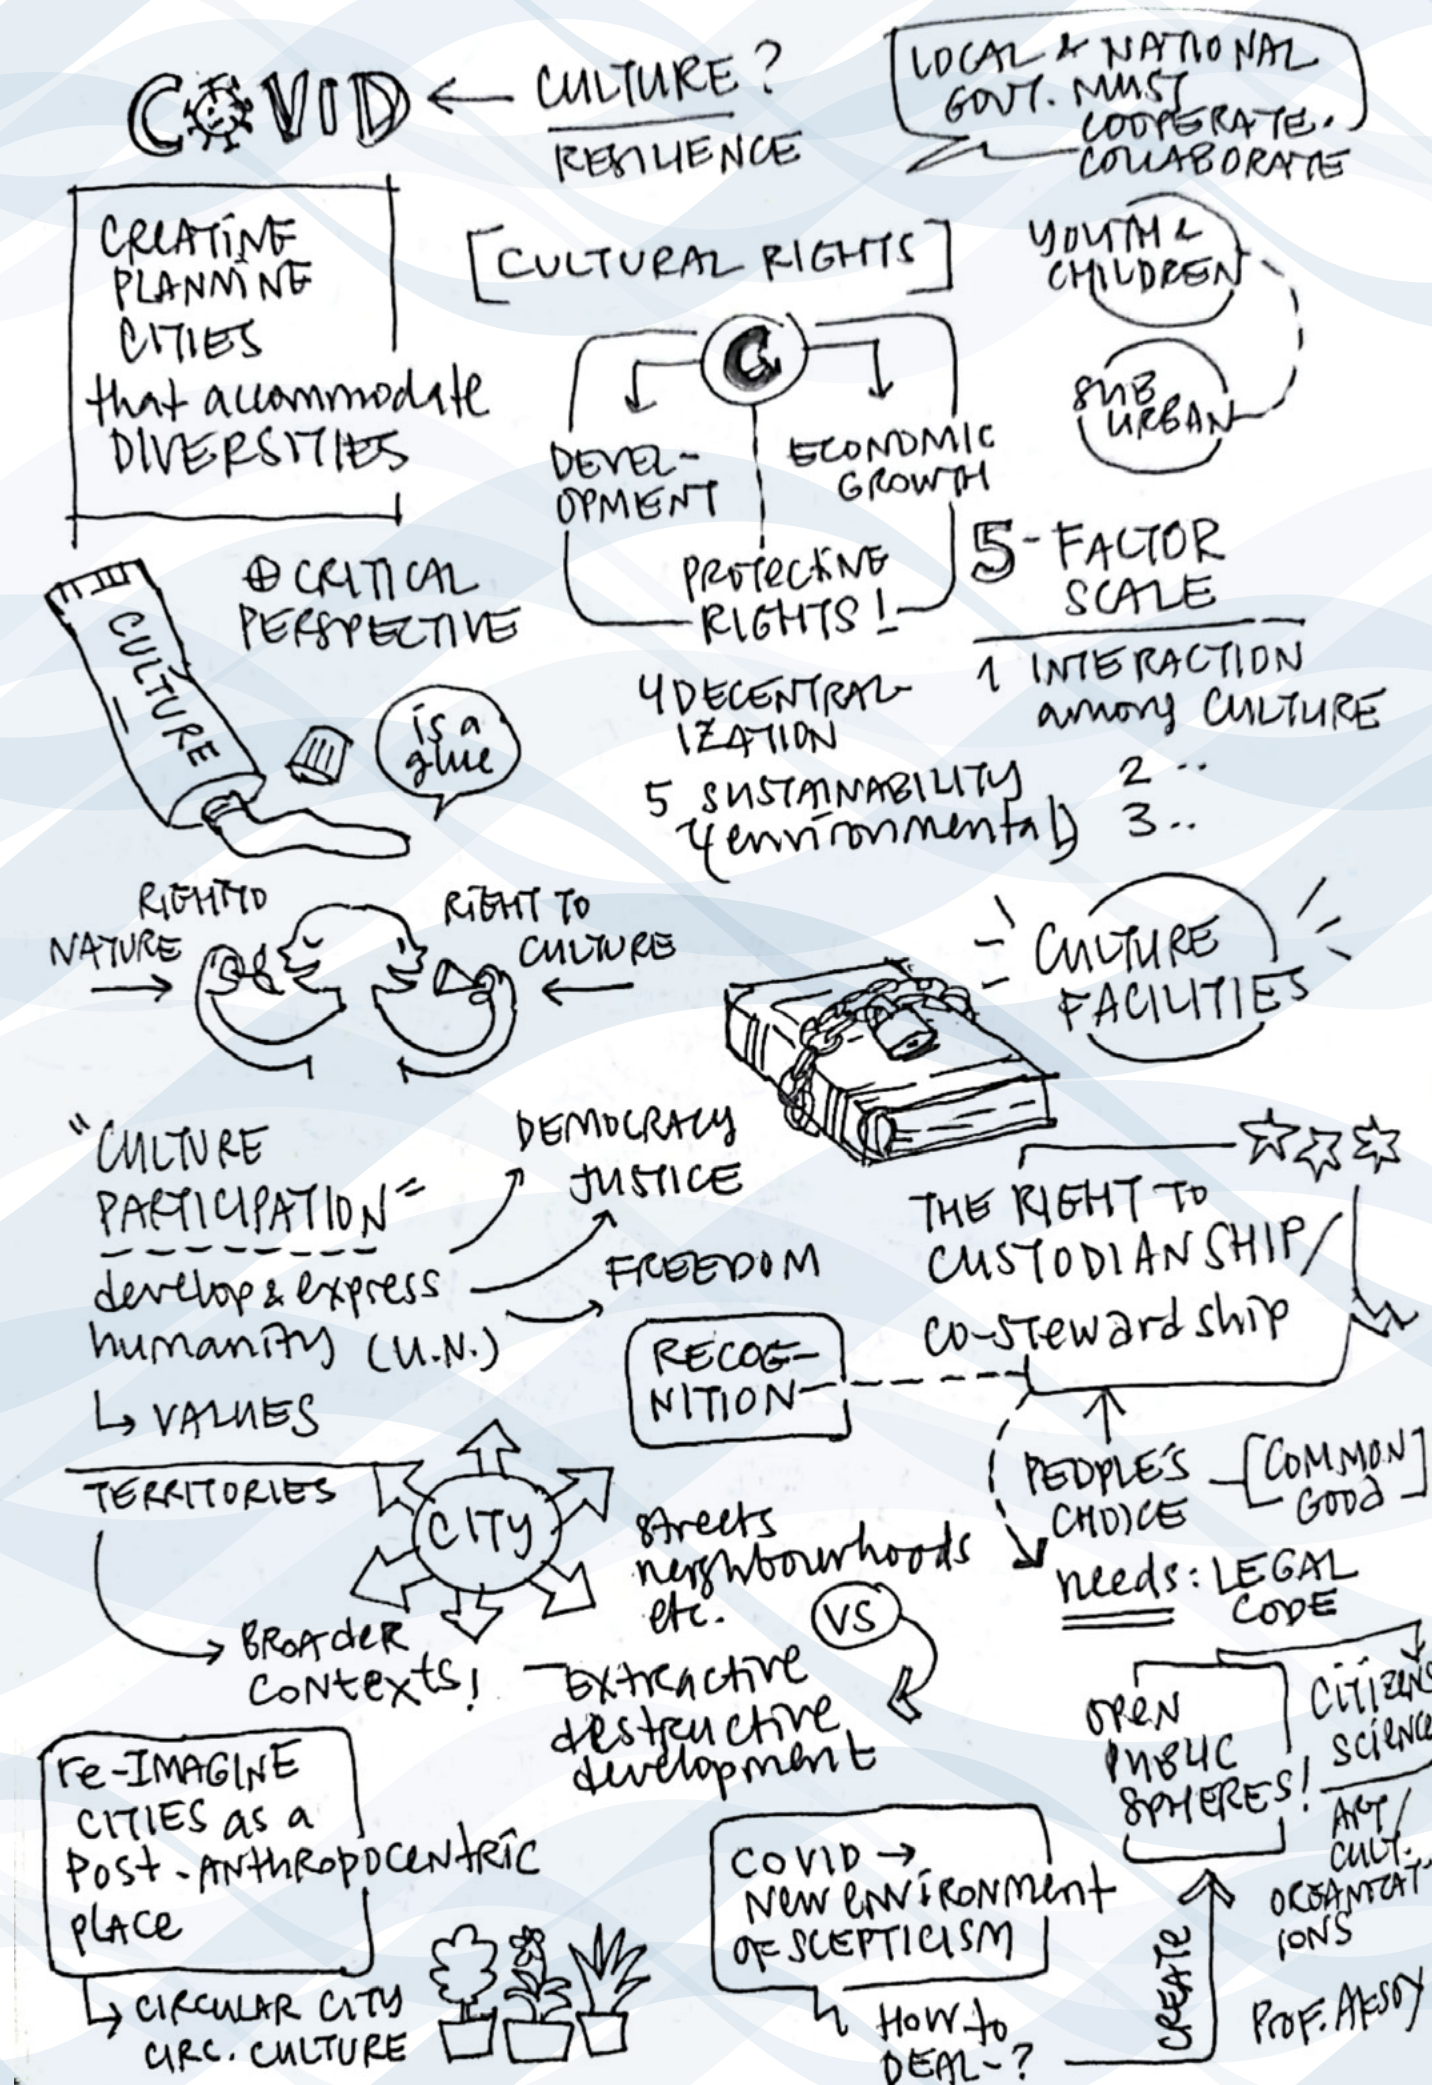 COVID ← CULTURE?
RESILIENCE
LOCAL & NATIONAL
GOVT. MUST
COOPERATE.
COLLABORATE
CREATING
PLANNING
CITIES
that accommodate
DIVERSITIES
[CULTURAL RIGHTS]
C
DEVEL-
OPMENT
ECONOMIC
GROWTH
PROTECTING
RIGHTS!
YOUTH &
CHILDREN
SUB
URBAN
⊕ CRITICAL
PERSPECTIVE
CULTURE
is a
glue
5-FACTOR
SCALE
1 INTERACTION
among CULTURE
2 ..
3 ..
4 DECENTRAL-
IZATION
5 SUSTAINABILITY
(environmental)
RIGHT TO
NATURE
RIGHT TO
CULTURE
CULTURE
FACILITIES
"CULTURE
PARTICIPATION"
develop & express
humanity (U.N.)
↳ VALUES
DEMOCRACY
JUSTICE
FREEDOM
THE RIGHT TO
CUSTODIANSHIP/
CO-STEWARDSHIP
RECOG-
NITION
PEOPLE'S
CHOICE
[COMMON]
GOOD
needs: LEGAL
CODE
TERRITORIES
CITY
BROADER
CONTEXTS!
streets
neighbourhoods
etc.
VS
Extractive
destructive
development
re-IMAGINE
CITIES as a
Post-ANTHROPOCENTRIC
PLACE
↳ CIRCULAR CITY
CIRC. CULTURE
COVID →
NEW ENVIRONMENT
OF SCEPTICISM
HOW to
DEAL-?
CREATE
OPEN
PUBLIC
SPHERES!
CITIZENS
SCIENCE
ART/
CULT.
ORGANIZAT-
IONS
Prof. AKSOY